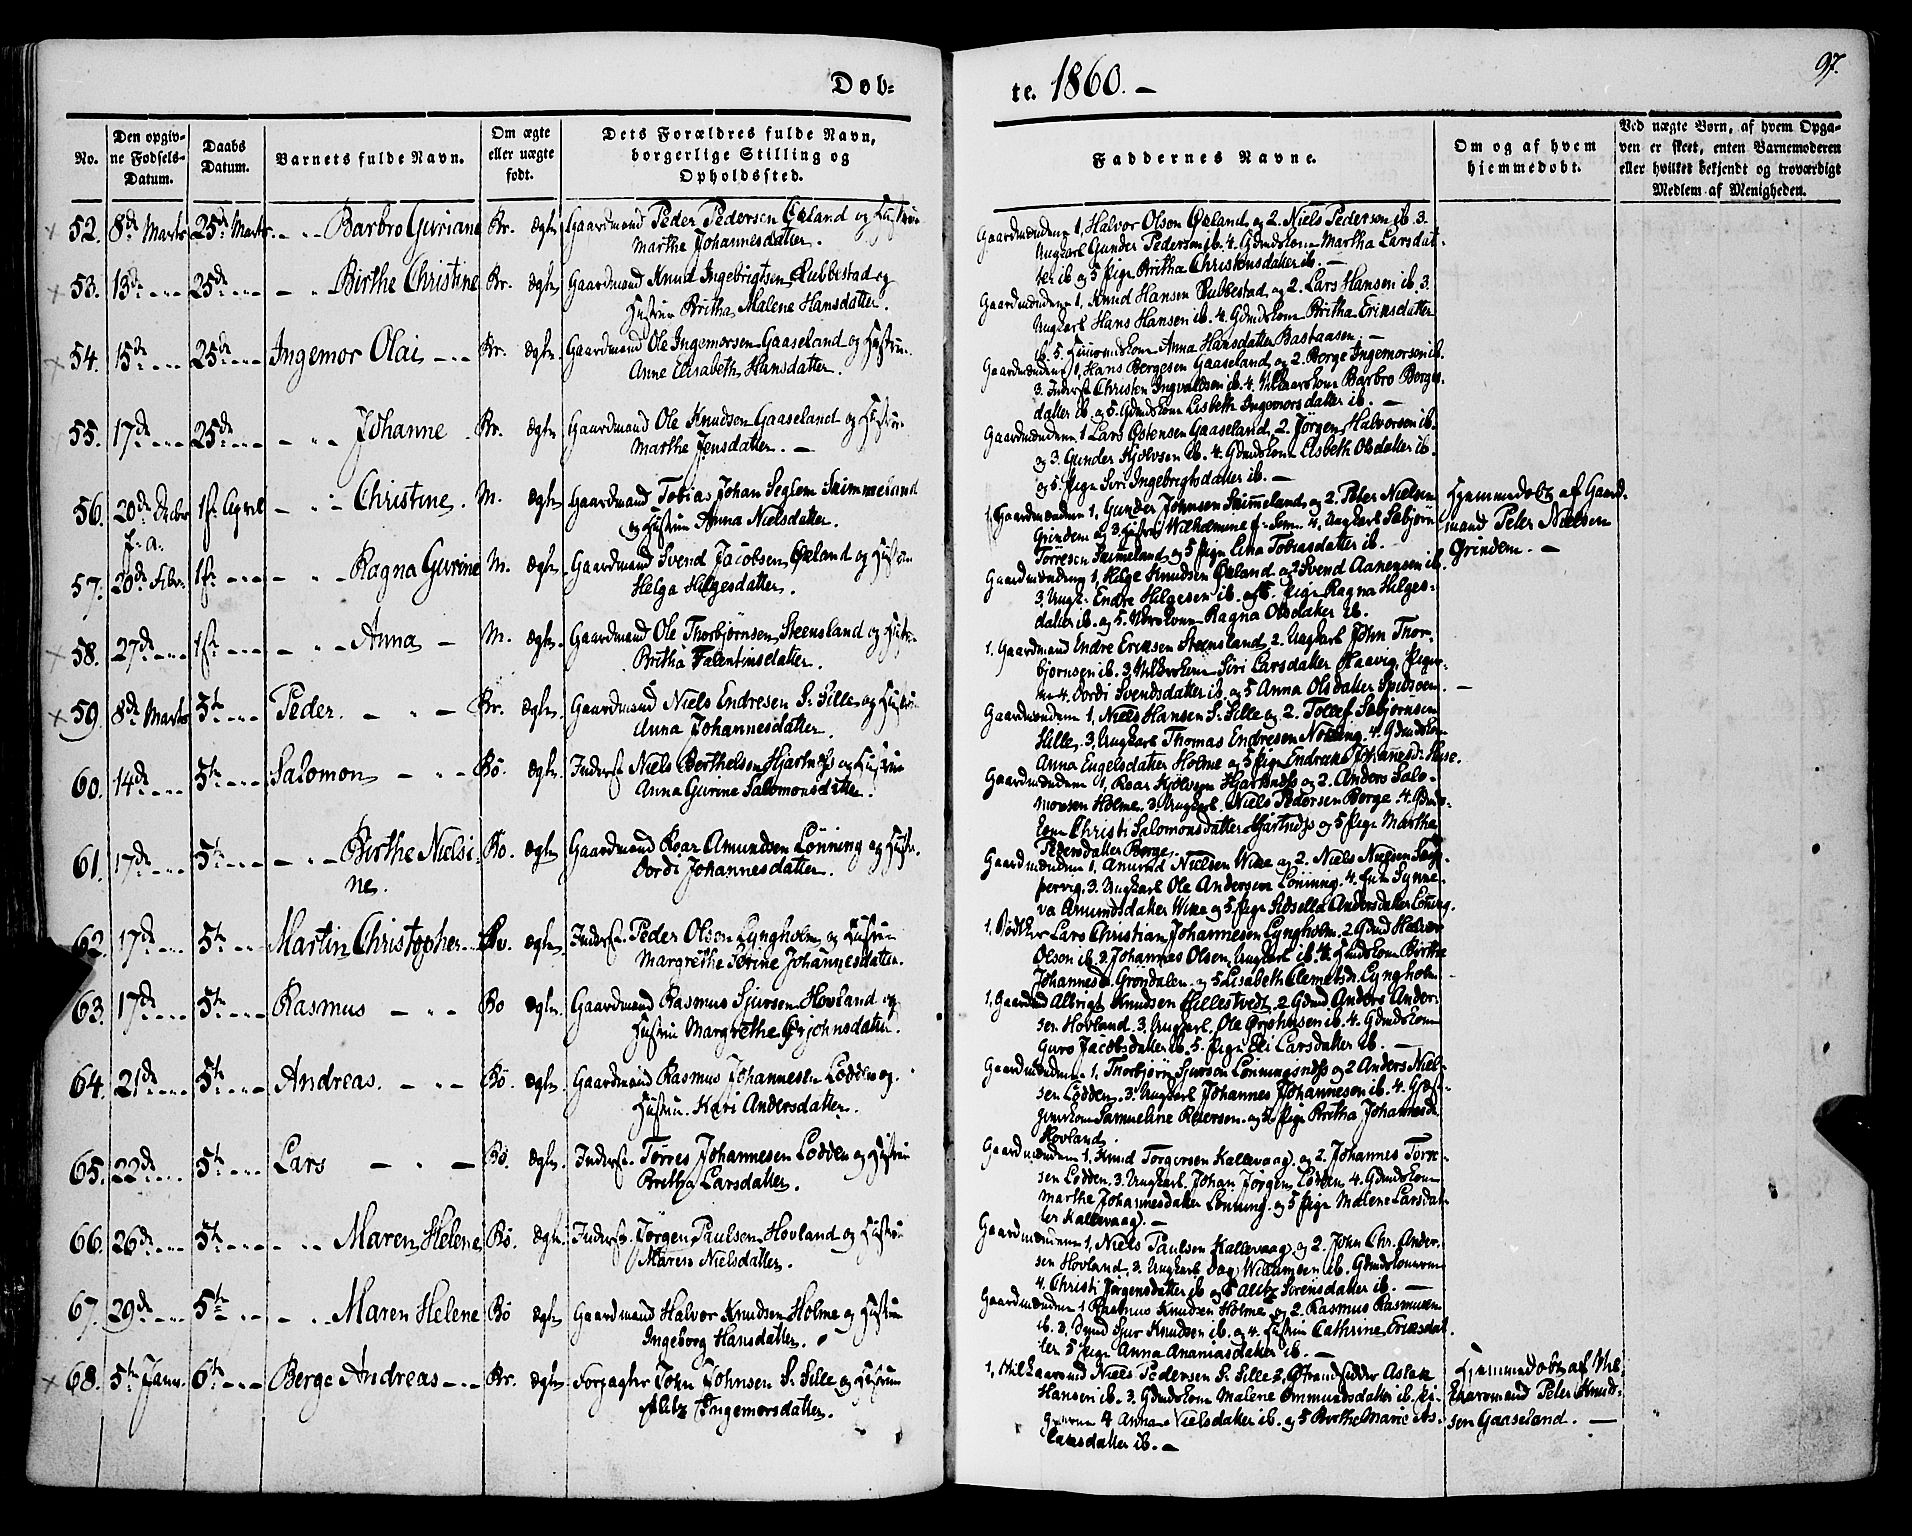 Døb-
te. 1860. —
97.
No.
Den opgiv-
ne Fødsels-
Datum.
Daabs
Datum.
Barnets fulde Navn.
Om ægte
eller uægte
født.
Dets Forældres fulde Navn,
borgerlige Stilling og
Opholdssted.
Faddernes Navne.
Om og af hvem
hjemmedøbt.
Ved uægte Børn, af hvem Opga-
ven er skeet, enten Barnemoderen
eller hvilket bekjendt og troværdigt
Medlem af Menigheden.
52. 8de Marts 25de Marts Barbro Guriane Br. Ægte Gaardmand Peder Pedersen Øeland og Hustru
Marthe Johannesdatter.
Gaardmændene 1, Halvor Olson Øeland og 2. Niels Pederson ib. 3.
Ungkarl Gunder Pederson ib. 4. Gdmdskone Martha Larsdat-
ter ib og 5 Pige Britha Christensdatter ib. —
53. 13de 25de Birthe Christine Br. Ægte Gaardmand Knud Ingebrigtsen Rubbestad og
Hustru Britha Malene Hansdatter.
Gaardmændene 1, Knud Hansen Rubbestad og 2. Lars Hansen ib. 3.
Ungkarl Hans Hansen ib. 4. Gdmdskone Britha Eriksdatter
ib. 5. Anna Hansdatter Bastaasen. —
54. 15de 25de Ingemor Olai Br. Ægte Gaardmand Ole Ingemorsen Gaaseland og Hustru
Anne Elisabeth Hansdatter.
Gaardmændene 1, Hans Bergesen Gaaseland og 2. Berge Ingemorsen ib.
3. Inderst Christen Ingvaldsen ib. 4. Barbro Berges-
datter ib. og 5. Gdmdskone Lisbeth Ingemorsdatter ib. —
55. 17de 25de Johanne Br. Ægte Gaardmand Ole Knudsen Gaaseland og Hustru
Marthe Jensdatter. —
Gaardmændene 1 Lars Østensen Gaaseland, 2. Jørgen Halvorsen ib.
og 3. Gunder Kjølvsen ib. 4. Gdmdskone Lisbeth Olsdatter ib.
og 5. Pige Siri Ingebrigtsdatter ib. —
56. 20de Decbr 1ste April Christine M. Ægte Gaardmand Tobias Johan Seglem Skimmeland
f. a.
og Hustru Anna Nielsdatter.
Gaardmændene 1, Gunder Johnsen Skimmeland og 2. Peter Nielsen
Grindem og 3 Hustru Wilhelmine 4. Ungkarl Sebjørn
Torresen Skimmeland og 5 Pige Lina Tobiasdatter ib.
Hjemmedøbt af Gaard-
mand Peter Nielsen
Grindem. —
57. 20de Febr. 1ste Ragna Gurine M. Ægte Gaardmand Svend Jacobsen Øeland og Hustru
Helga Helgesdatter.
Gaardmændene 1, Helge Knudsen Øeland og 2 Svend Aanensen ib.
3. Ungk. Endre Helgesen ib. Pige Ragna Helges-
datter ib. og 5. Ragna Olsdatter ib.
58. 27de 1ste Anna M. Ægte Gaardmand Ole Thorbjørnsen Steensland og Hustru
Britha Falentinsdatter.
1. Gaardmand Endre Eriksen Steensland, 2. Ungkarl John Thor-
bjørnsen ib. 3. Siri Larsdatter Haavig, Piger-
ne 4. Dordi Svendsdatter ib. og 5 Anna Olsdatter Spidsøen. —
59. 8de Marts 5te Peder. Br. Ægte Gaardmand Niels Endresen S. Sille og Hustru
Anna Johannesdatter.
Gaardmændene 1, Niels Hansen S. Sille og 2. Tollef Sebjørnsen
Hille. 3. Ungkarl Thomas Endresen 4. Gdmdskone
Anna Engelsdatter Holme og 5 Pige
60. 14de 5te Salomon Bø. Ægte Inderst Niels Berthelsen Hjartnæs og Hustru
Anna Gurine Salomonsdatter.
Gaardmændene 1, Roar Kjølvsen Hjartnæs og 2. Anders Salo-
monsen Holme. 3. Ungkarl Niels Pedersen Berge. 4. Gdmds-
kone Christi Salomonsdatter Hjartnæs og 5 Pige Martha
Pedersdatter Berge.
61. 17de 5te Birthe Nielsi-
ne.
Bø. Ægte Gaardmand Roar Amundsen Lönning og Hustru
Dordi Johannesdatter.
Gaardmændene 1. Amund Nielsen Wike og 2. Niels Nielsen
3. Ungkarl Ole Andersen Lönning. 4. Synne-
va Amundsdatter Wike og 5 Pige Sidsella Andersdatter Lönning.
62. 17de 5te Martin Christopher Bø. Ægte Inderst Peder Olsen Lyngholm og Hustru
Margrethe Serine Johannesdatter.
1. Bødker Lars Christian Johannesen Lyngholm. 2 Gmd Halvor
Olson ib. 3 Johannes Olsen, Ungkarl ib. 4. Gmdskone Birthe
Johannesd. Grøndalen og 5 Lisabeth Clemetsd. Lyngholm
63. 17de 5te Rasmus Bø Ægte Gaardmand Rasmus Sjursen Hovland og
Hustru Margrethe
1. Gaardmd Albrigt Knudsen Hillestvedt, 2 Gmd Anders Ander-
sen Hovland. 3. Ungkarl. Ole ib. 4. Gdmdskone
Guro Jacobsdatter ib. 5. Pige Eli Larsdatter ib. —
64. 21de 5te Andreas. Bø. Ægte Gaardmand Rasmus Johannesen Lodden og
Hustru Kari Andersdatter.
Gaardmændene 1. Thorbjørn Sjurson Lönningsnæs og 2 Anders Niel-
sen Lodden. 3. Ungkarl Johannes Johannesen ib. 4.
Sameline Petersen og 5 Pige Britha Johannesd.
Hovland.
65. 22de 5te Lars Bø. Ægte Inderst Torres Johannesen Lodden og Hustru
Britha Larsdatter.
Gaardmændene 1. Knud Torgersen Kallevaag og 2. Johannes Torre-
sen Lodden. 3. Ungkarl. Johan Jørgen Lodden 4. Gdmdskone
Marthe Johannesdatter Lönning og 5 Pige Malene Larsdat-
ter Kallevaag. —
66. 26de 5te Maren Helene Bø. Ægte Inderst Jørgen Paulsen Hovland og Hustru
Maren Nielsdatter.
Gaardmændene 1, Niels Paulsen Kallevaag og 2. John Chr. Ander-
sen Hovland. 3. Ungkarl Dag Willumsen ib. Gdmdskonerne
4. Christi Jørgensdatter ib og 5 Alitz Sørensdatter ib. —
67. 29de 5te Maren Helene Bø Ægte Gaardmand Halvor Knudsen Holme og Hustru
Ingeborg Hansdatter.
Gaardmændene 1 Rasmus Knudsen Holme og 2. Rasmus Rasmusen
ib. 3. Sjur Knudsen ib. og 4. Hustru Cathrine Eriksdat-
ter 5 Pige Anna Ananiasdatter ib. —
68. 5te Janv. 6te Berge Andreas Br. Ægte Forpagter John Johnsen S. Sille og Hustru
Alitz Ingemorsdatter.
1, Vilkaarmd Niels Pedersen S. Sille 2, Strandsidder Aslak
Hansen ib. 3. Gdmdskone Malene Ommundsdatter ib. Pi-
gerne 4 Anna Nielsdatter ib. og 5 Berthe Marie As-
laksdatter ib. —
Hjemmedøbt af Vil-
kaarsmand Peter Knud-
sen Gaaseland. —